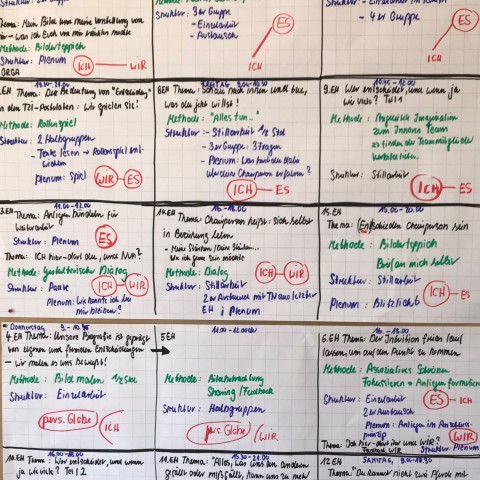 Struktur: 3er Gruppe
- Einzelarbeit
- Austausch
ES
ICH
- 4er Gruppe
ES
ICH
Thema: Mein Bild und meine Vorstellung von
Methode: Bilderteppich
Struktur: Plenum
ORGA
ICH WIR
19.30-21.00
EH Thema: Die Bedeutung von "Entscheidung"
in den TZI-Axiomen: wir spielen sie!
Methode: Rollenspiel
Struktur: 2 Halbgruppen
- Texte lesen → Rollenspiel ent-
wickeln
Plenum: Spiel
WIR ES
FREITAG 9.00-10.30
8.EH Thema: Schau nach innen und tue,
was du jetzt willst!
Methode: "Alles tun..."
Struktur: - Stillarbeit 1/2 Std
- 3er Gruppe: 3 Fragen
- Plenum: Was hast du dabei
über deine Chairperson erfahren?
ICH ES
10.45-12.00
9.EH Wer entscheidet, und wann ja
wie viele? Teil 1
Methode: Angeleitete Imagination
zum Inneren Team
Struktur: Stillarbeit
ICH ES
3.EH Thema: Anliegen bündeln für
Weiterarbeit
Struktur: Plenum
ES
Thema: ICH hier-dort du, und Nun?
Methode: gestalterischer Dialog
Struktur: Paare
ICH WIR
Plenum: Wie konnte ich bei
mir bleiben?
14.EH Thema: Chairperson heißt: sich selbst
in Beziehung leben
- Meine Stärken / Deine Stärken...
Wo ich gerne sein möchte
Methode: Dialog
ICH WIR
Struktur: Stillarbeit
2er Austausch mit TN aus letzter
EH i Plenum
15.EH
Thema: (Ent)schieden Chairperson sein
Methode: Bilderteppich
Brief an mich selbst
Struktur: Stillarbeit
Plenum: Blitzlicht
ICH ES
Donnerstag 9-10.45
4.EH Thema: Unsere Biografie ist geprägt
von eigenen und fremden Entscheidungen
- wir malen es uns bewusst!
Methode: Bild malen
Struktur: Einzelarbeit
pers. Globe
ICH
5EH
11.00-12.00 Uhr
Methode: Bildbetrachtung
Sharing / Feedback
Struktur: Halbgruppen
pers. Globe
WIR
6.EH Thema: Der Intuition freien Lauf
lassen, um auf den Punkt zu kommen
Methode: Assoziatives Schreiben
Fokussieren → Anliegen formulieren
Struktur: Einzelarbeit
2er Austausch
ES ICH
Plenum: Anliegen im Anschluss-
prinzip
Thema: Ich hier-dort ihr und WIR?
WIR
Struktur: Plenum
10.EH Thema: Wer entscheidet, und wann
ja wie viele? Teil 2
19.30-21.00
11.EH Thema: "Alles, was uns an anderen
gefällt oder mißfällt, kann uns zu mehr
SAMSTAG, 9.00-10.30
12 EH Thema:
"Du kannst nicht zwei Pferde mit